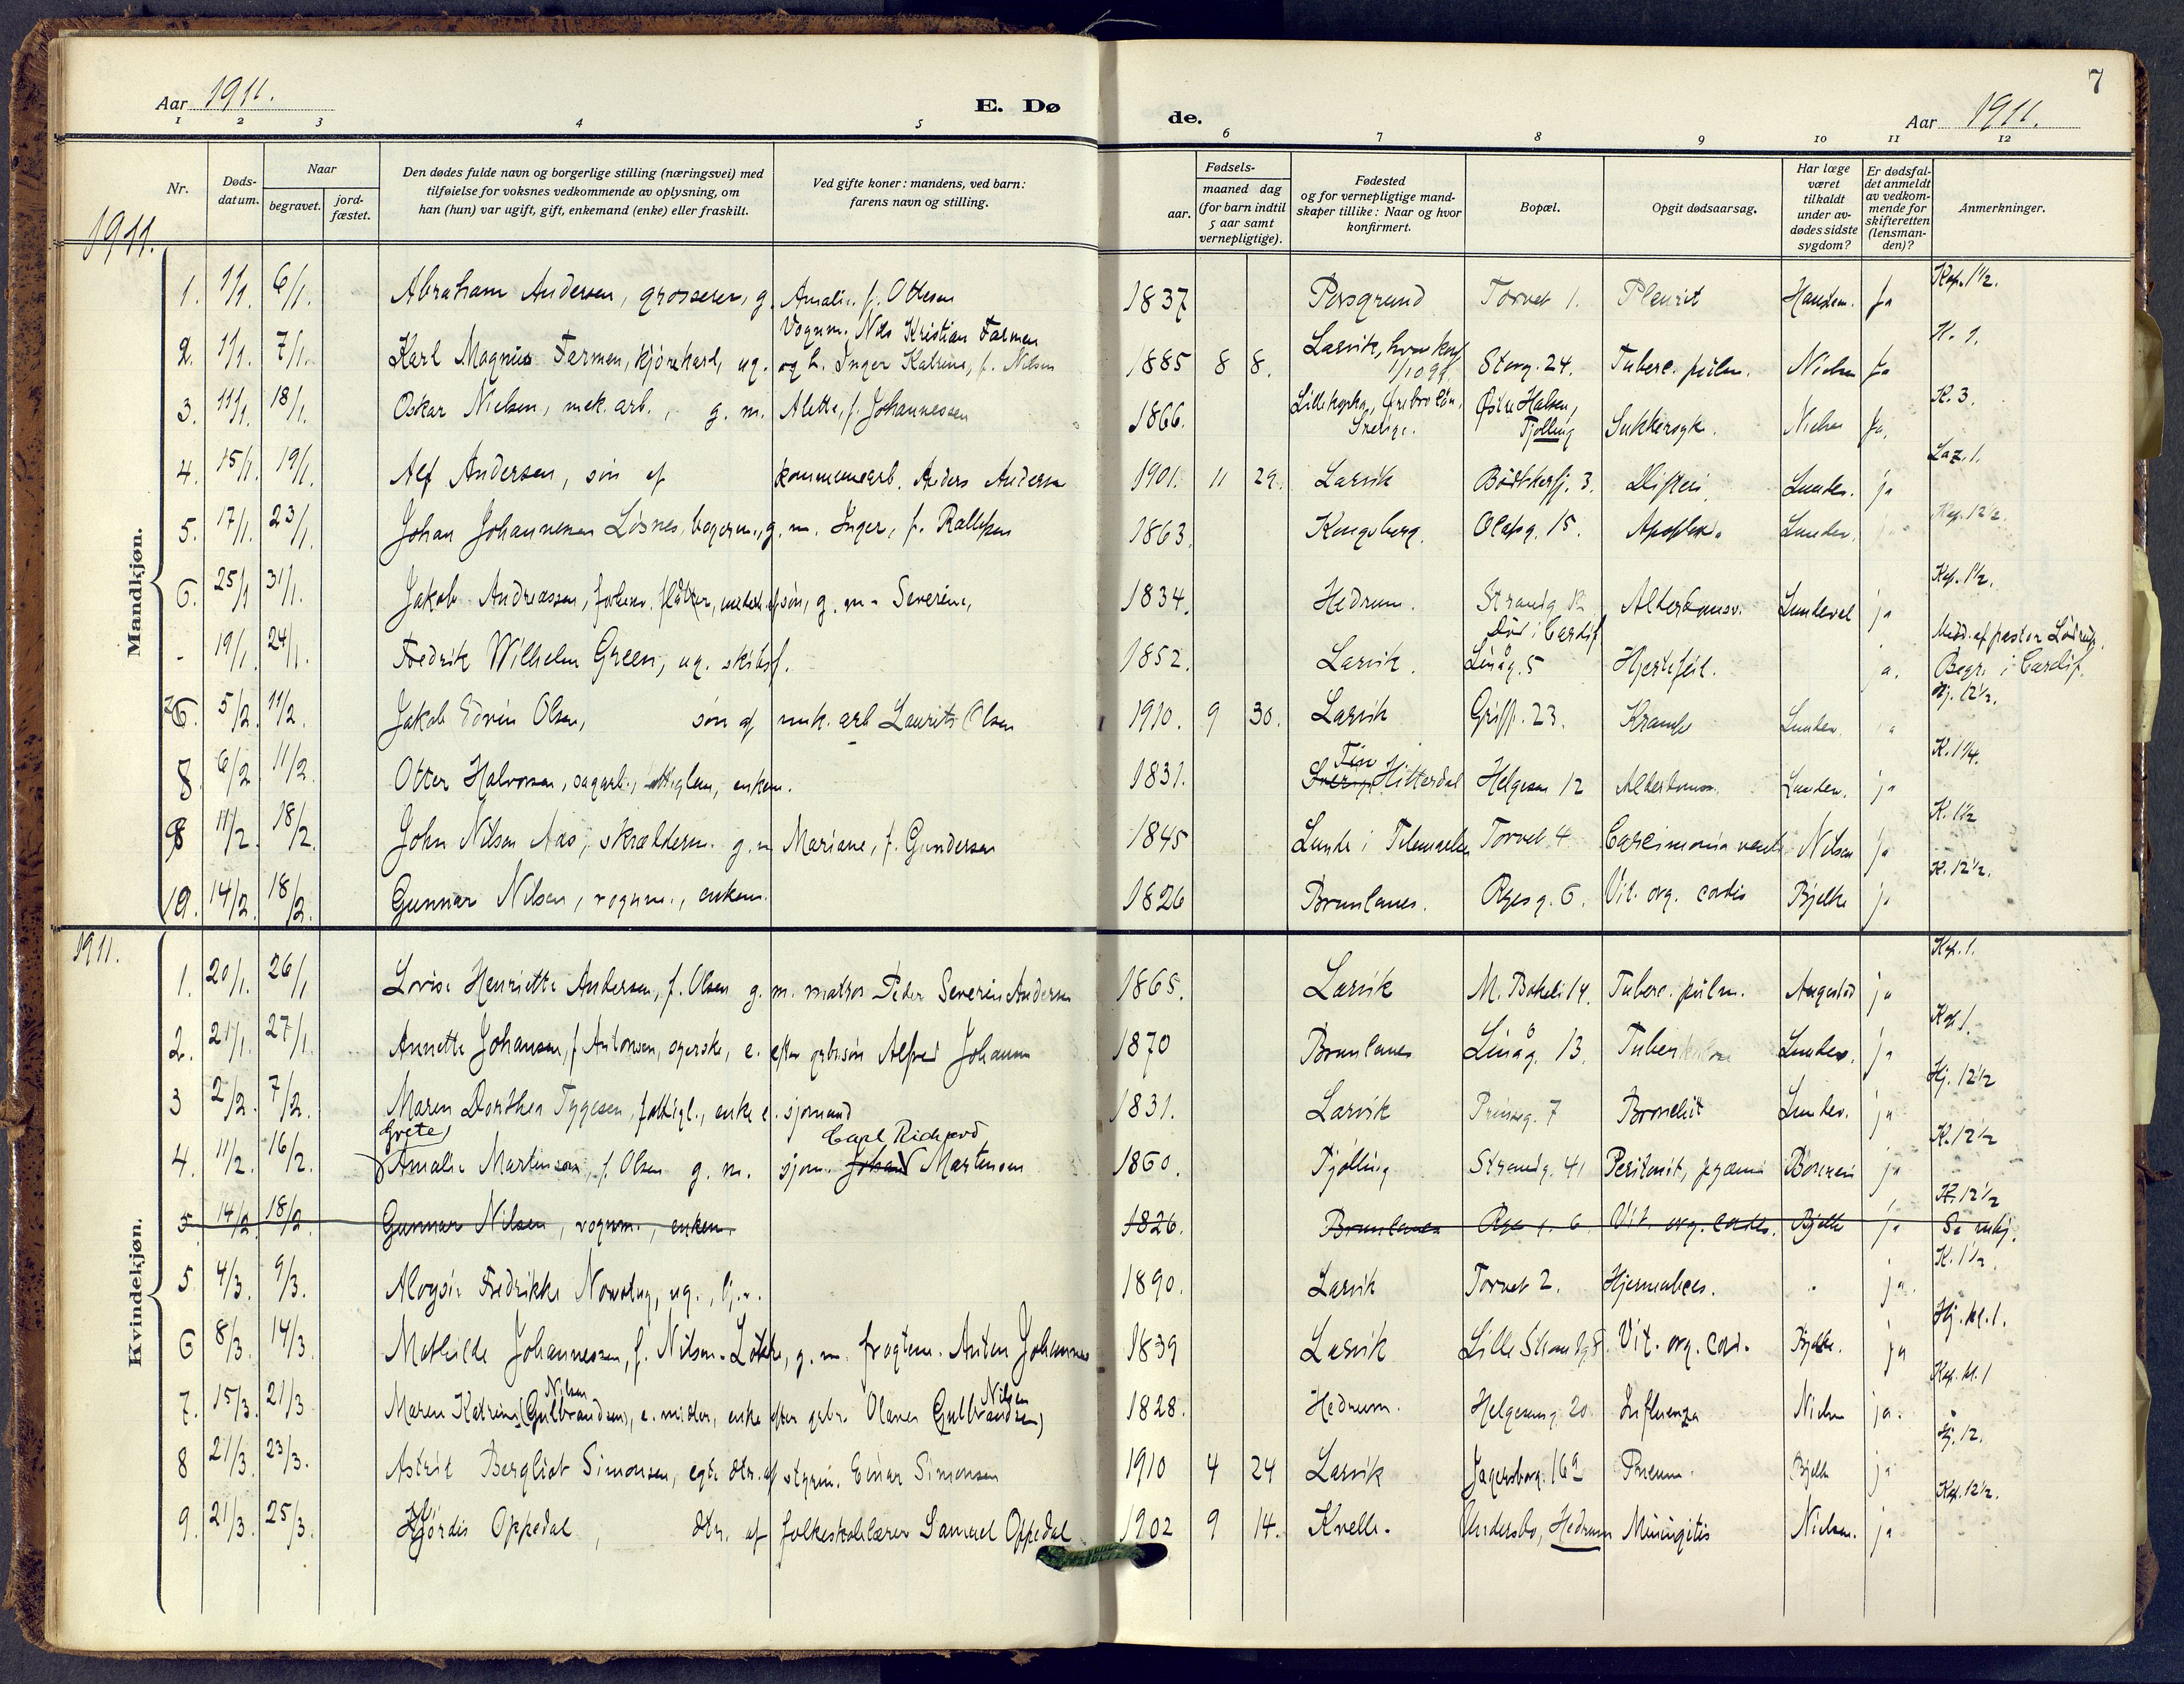 7
Aar 1911.
E. Dø
de.
Aar 1911.
1 2 3 4 5 6 7 8 9 10 11 12
Nr.
Døds-
datum.
Naar
begravet.
jord-
fæstet.
Den dødes fulde navn og borgerlige stilling (næringsvei) med
tilføielse for voksnes vedkommende av oplysning, om
han (hun) var ugift, gift, enkemand (enke) eller fraskilt.
Ved gifte koner: mandens, ved barn:
farens navn og stilling.
Fødsels-
aar.
maaned dag
(for barn indtil
5 aar samt
vernepligtige).
Fødested
og for vernepligtige mand-
skaper tillike: Naar og hvor
konfirmert.
Bopæl.
Opgit dødsaarsag.
Har læge
været
tilkaldt
under av-
dødes sidste
sygdom?
Er dødsfal-
det anmeldt
av vedkom-
mende for
skifteretten
(lensman-
den)?
Anmerkninger.
1911.
Mandkjøn.
Kap. 1½.
1. 1/1. 6/1. Abraham Andersen, grosserer, g. Amalie f. Ottesen 1837 Porsgrund Torvet 1. Pleurit Hansen. Ja
Vognm. Nils Kristian Farmen K. 1.
2. 1/1. 7/1. Karl Magnus Farmen, kjørekarl, ug. og h. Inger Katrine, f. Nilsen 1885 8 8. Larvik, hvor konf. 1/10 99. Storg. 24. Tuberc. pulm. Nielsen Ja
K. 3.
3. 11/1. 18/1. Oskar Nielsen, mek. arb., g. m. Alette, f. Johannessen 1866. Sverige. Østre Halsen, Tjølling Sukkersyke. Nielsen Ja.
Laz. 1.
4. 15/1. 19/1. Alf Andersen, søn af kommunearb. Anders Andersen 1901. 11 29. Larvik 3. Difteri. Lunden. ja
Kap. 12½.
5. 17/1. 23/1. Johan Johannesen Løsnes, bagerm., g. m. Inger, f. 1863. Kongsberg. Olafsg. 15. Apoplex. Lunden.
Kap. 1½.
6. 25/1 31/1. Jakob Andreassen, g. m. Severine, 1834. Hedrum. Strandg. Alderdomssv. Lundeval ja
Død i Cardif Medd. af pastor Lødrup.
- 19/1. 24/1. Fredrik Wilhelm Green, ug. skibsf. 1852. Larvik. Linåg. 5 Hjertefeil. ja. Begr. i Cardif.
Hj. 12½.
7. 5/2. 11/2. Jakob Edvin Olsen, søn af mek. arb Laurits Olsen 1910. 9 30. Larvik Griff. 23. Krampe Lunden.
K. 1¼.
8. 6/2. 11/2. Otter Halvorsen, sagarb., fattiglem, enkem. 1831. Hitterdal Helgesen 12 Alderdomssv. Lunden. ja
K. 1½
9 11/2. 18/2. John Nilsen Aas, skræderm. g. m Mariane, f. Gundersen 1845 Lunde i Telemarken Torvet 4. Carcinoma ventr. Nilsen ja
K. 12½.
10. 14/2. 18/2. Gunnar Nilsen, vognm., enkem. 1826 Brunlanes. Reges g. 6. Vit. org. cordis Bjelke ja
1911.
Kvindekjøn.
Kap. 1.
1. 20/1. 26/1 Lovise Henriette Andersen, f. Olsen g. m. matros Peder Severin Andersen 1865. Larvik M. Bøkeli 14. Tuberc. pulm. Augestad ja
Kap. 1.
2. 21/1. 27/1. Annette Johansen, f. Antonsen, syerske, e. efter grbr.søn Alfred Johansen 1870 Brunlanes Linåg. 13. Tuberkulose Lunden. ja
Hj. 12½
3 2/2. 7/2. Maren Dorthea Tygesen, fattigl., enke e. sjømand 1831. Larvik Prinseg. 7 Bronchit Lunden. ja
Grete Carl Richard K. 12½
4. 11/2. 16/2. Amalie Martinsen, f. Olsen g. m. sjøm. Johan Martensen 1860. Tjølling Strandg. 41 Peritonit, pyæmi ja
K. 12½
5. 14/2 18/2. Gunnar Nilsen, vognm., enkem. 1826. Brunlanes Reges g. 6 Vit. org. cordis. Bjelke ja Se mkj.
K. 1½.
5 4/3. 9/3. Aloysie Fredrikke Nowotny, ug. 1890. Larvik Torvet 2. Hjerneabces. ja.
Hj. kl. 1.
6 8/3. 14/3. Mathilde Johannessen, f. Nilsen-Løkke, g. m. fragtem. Anton Johannes 1839 Larvik Lille Strandg 8. Vit. org. cord. Bjelke. ja
Nilsen Nilsen Kap. kl. 1
7. 15/3. 21/3 Maren Katrine (Gulbrandsen), enke efter grbr. Olaves (Gulbrandsen) 1828. Hedrum. Helgesensg. 20 Influenza Nielsen ja.
Hj. 12.
8 21/3. 23/3. Astrid Bergliot Simonsen, egte dtr. af styrm. Einar Simonsen 1910 4 24 Larvik Jegersborg. 16a Pneum. Bjelke ja
Kap. 12½.
9. 21/3. 25/3. Hjørdis Oppedal, dtr. af folkeskolelærer Samuel Oppedal 1902 9 14. Kvelle. Undersbo, Hedrum Miningitis Nielsen. ja